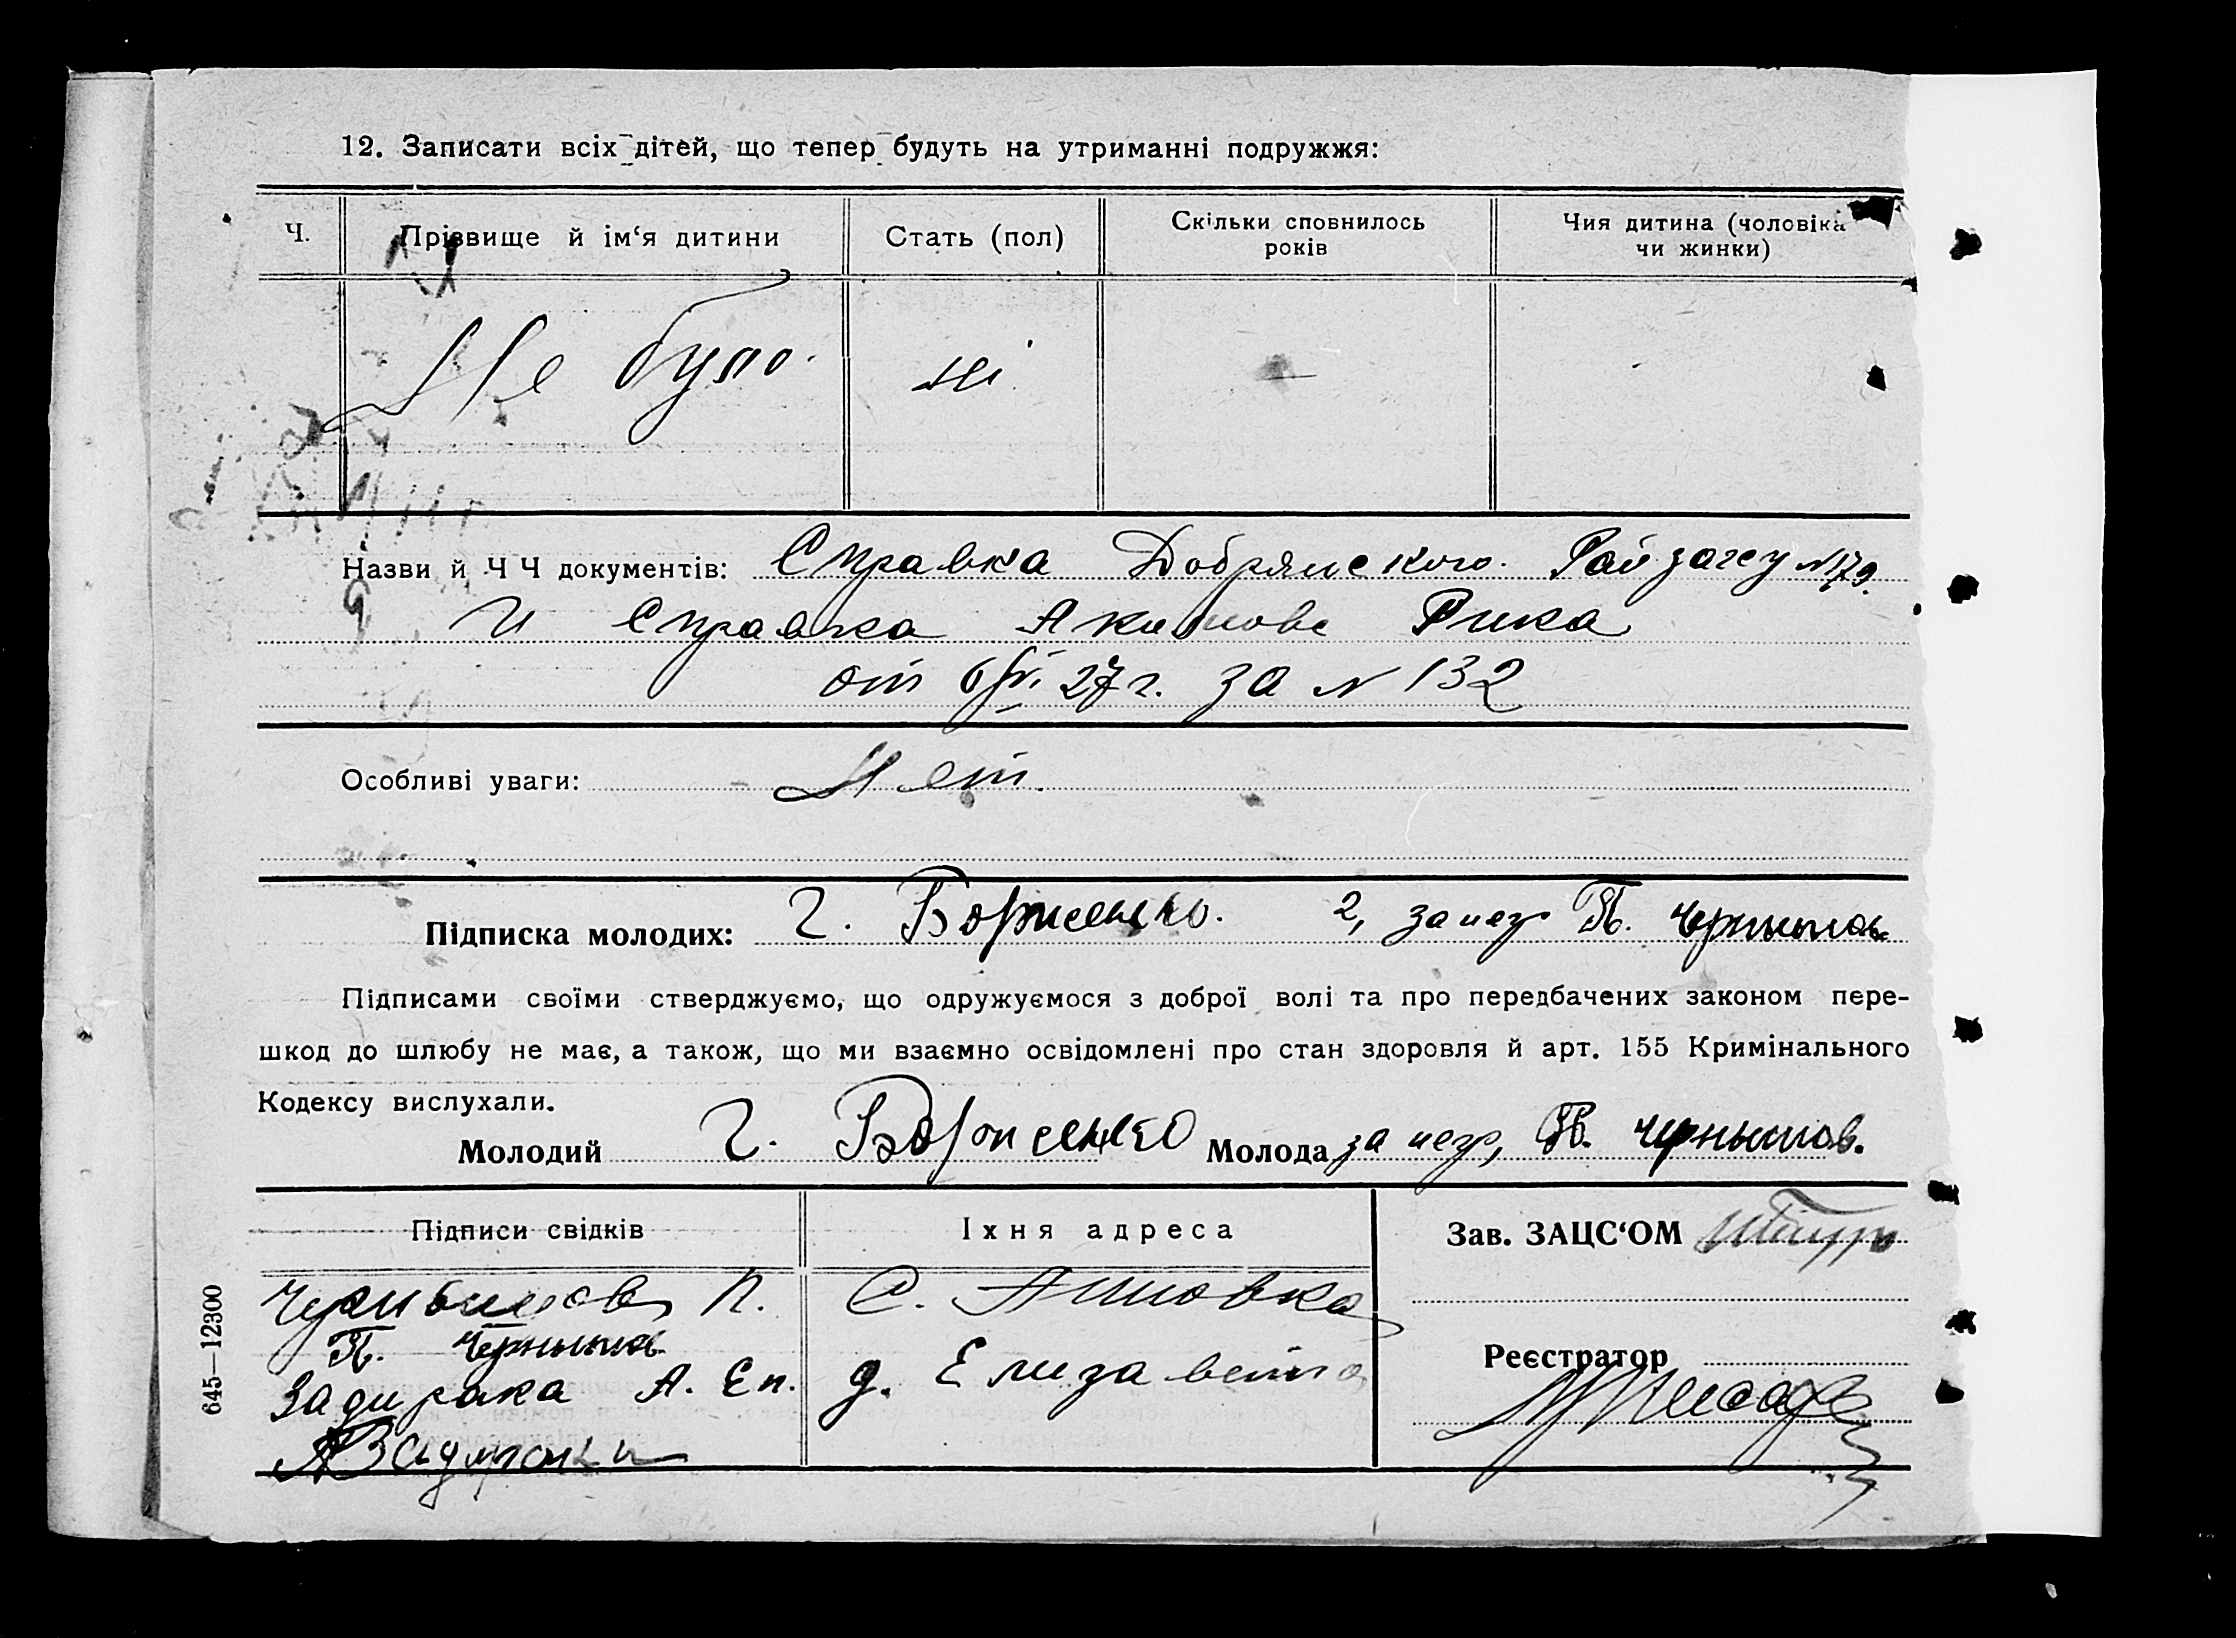 12. Записати всіх дітей, що тепер будуть на утриманні подружжя:
Ч.
Прізвище й ім‘я дитини
Стать (пол)
Скільки сповнилось років
Чия дитина (чоловіка чи жинки)
Не було. ні —
Назви й Ч Ч документів: Справка Добрянского Райзагсу №179.
И Справка Рика
от 27 г. за № 132
Особливі уваги: Нет.
Підписка молодих: Г. Борисенко. за негр П. Чернышов
Підписами своїми стверджуємо, що одружуємося з доброї волі та про передбачених законом пере-
шкод до шлюбу не має, а також, що ми взаємно освідомлені про стан здоровля й арт. 155 Кримінального
Кодексу вислухали.
Молодий Г. Борисенко Молода за негр, П. Чернышов.
Підписи свідків
Їхня адреса
Зав. ЗАЦС‘ОМ
П. С.
П. Чернышов
Задирака А. Еп. д. Елизавета
Реєстратор
645—12300